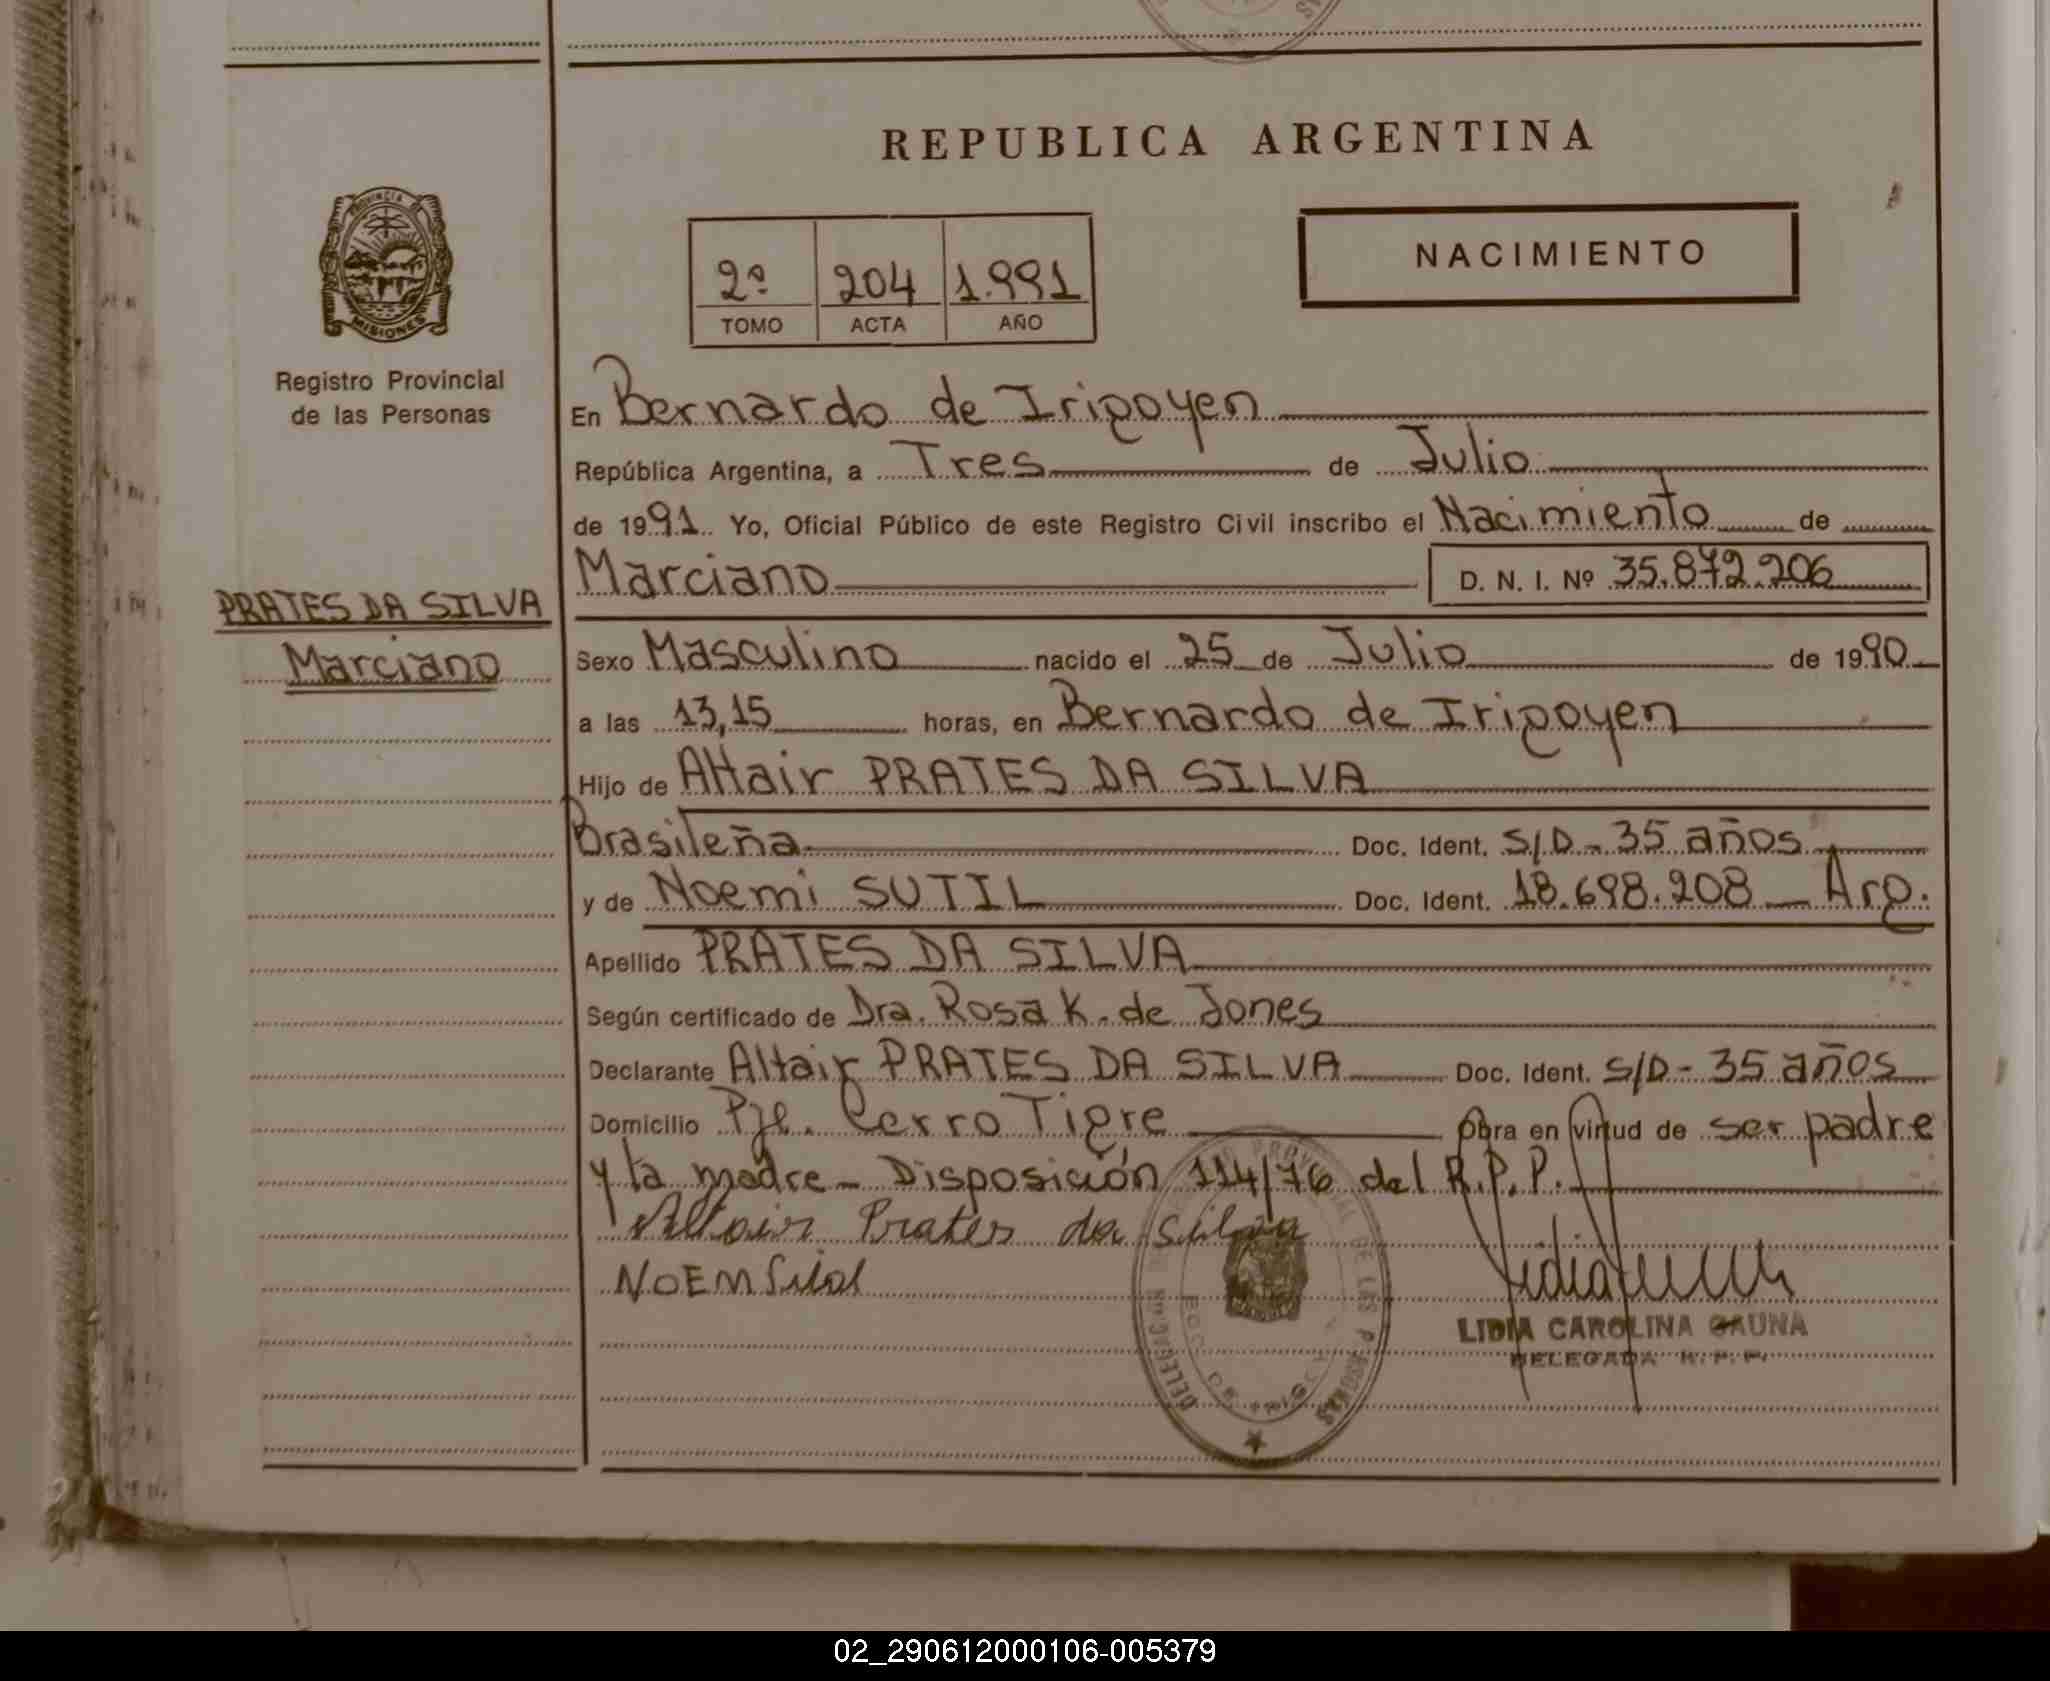 REPUBLICA ARGENTINA
PROVINCIA DE
MISIONES
Registro Provincial
de las Personas
2º 204 1.991
TOMO ACTA AÑO
NACIMIENTO
En Bernardo de Irigoyen
República Argentina, a Tres de Julio
de 1991. Yo, Oficial Público de este Registro Civil inscribo el Nacimiento de
Marciano D. N. I. Nº 35.872.206
PRATES DA SILVA
Marciano
Sexo Masculino nacido el 25 de Julio de 1990
a las 13,15 horas, en Bernardo de Irigoyen
Hijo de Altair PRATES DA SILVA
Brasileña Doc. Ident. S/D - 35 años
y de Noemi SUTIL Doc. Ident. 18.698.208 - Arg.
Apellido PRATES DA SILVA
Según certificado de Dra. Rosa K. de Jones
Declarante Altair PRATES DA SILVA Doc. Ident. S/D - 35 años
Domicilio Pje. Cerro Tigre Obra en virtud de ser padre
y la madre - Disposición 114/76 del R.P.P.
Altair Prates da Silva
LIDIA CAROLINA GAUNA
DELEGADA R. P. P.
02_290612000106-005379